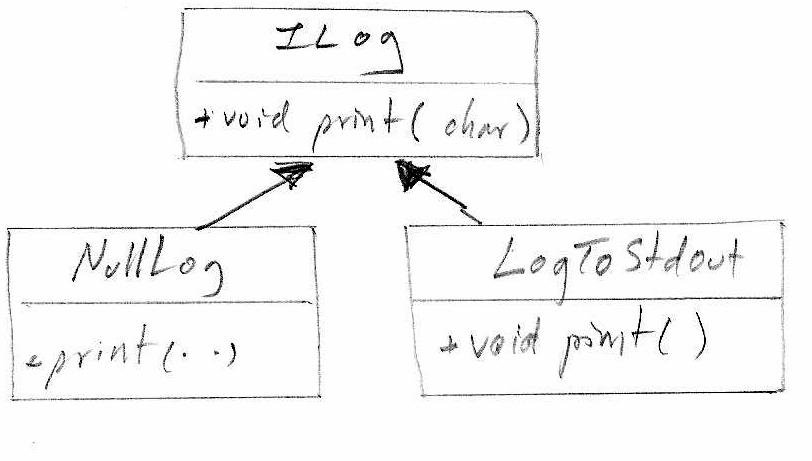 ILog
+void print(char)
NullLog
+print(..)
LogToStdout
+void print()